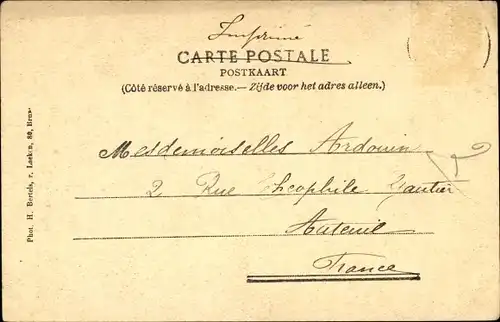 Imprimé
CARTE POSTALE
POSTKAART
(Côté réservé à l'adresse.— Zijde voor het adres alleen.)
Mesdemoiselles Ardouin
2 Rue Théophile Gautier
Auteuil
France
Phot. H. Bertels, r. Laeken, 86, Brux.